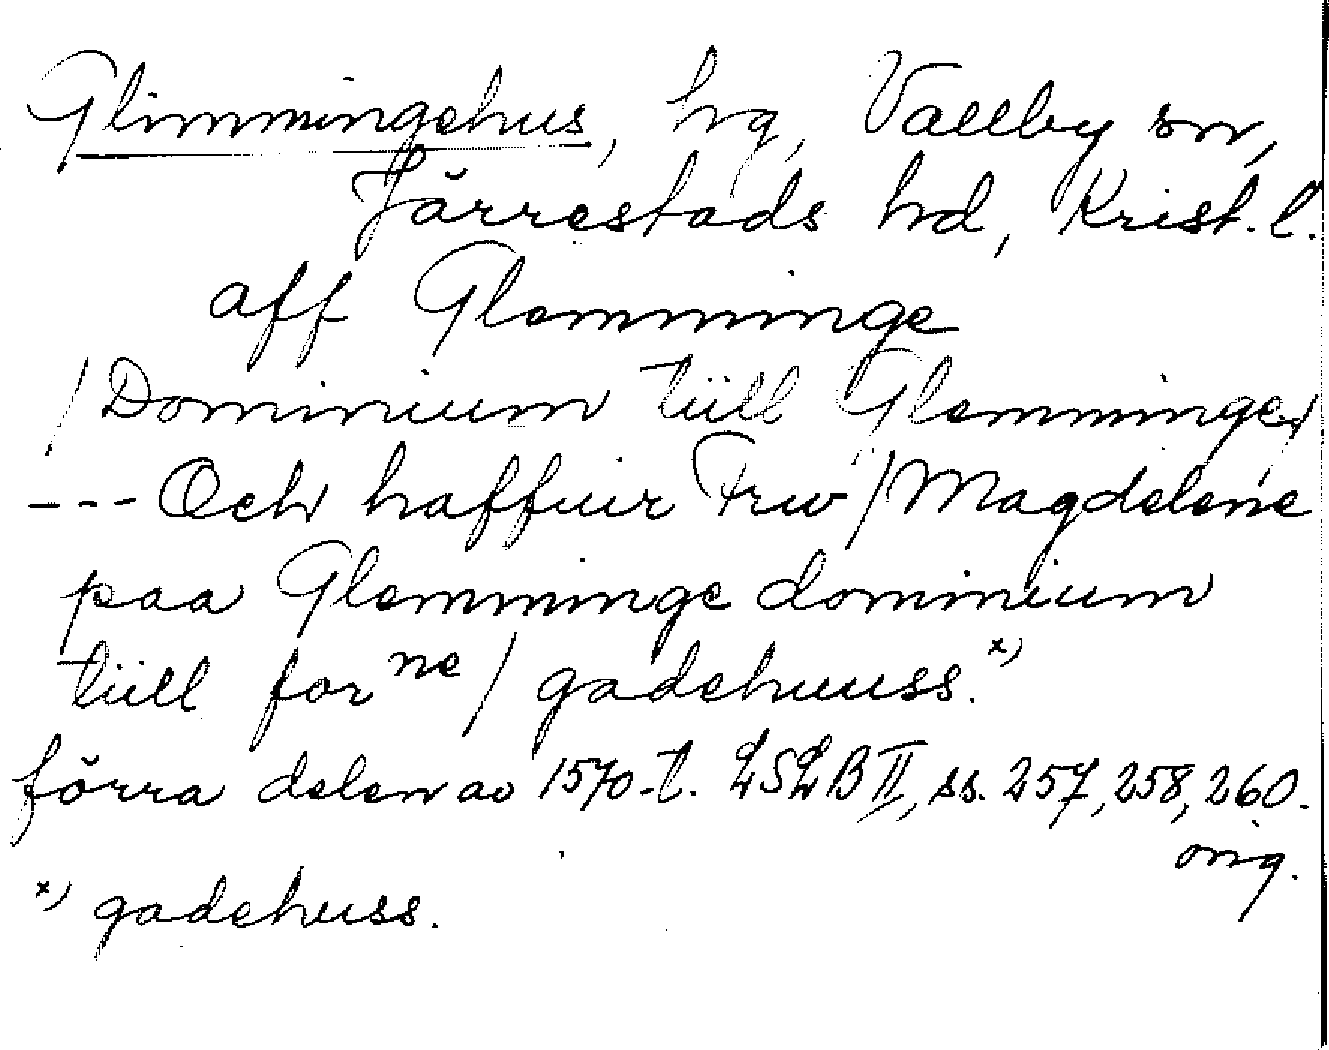 Glimmingehus, hg, Vallby sn,
Järrestads hd, Krist. l.
aff Glemminge
/Dominium tüll Glemminge/
--- Och haffuir Frw/Magdelene
paa Glemminge dominium
tüll for ne / gadehuuss. x)
förra delen av 1570-t. LSLB II, ss. 257, 258, 260.
orig.
x) gadehuss.